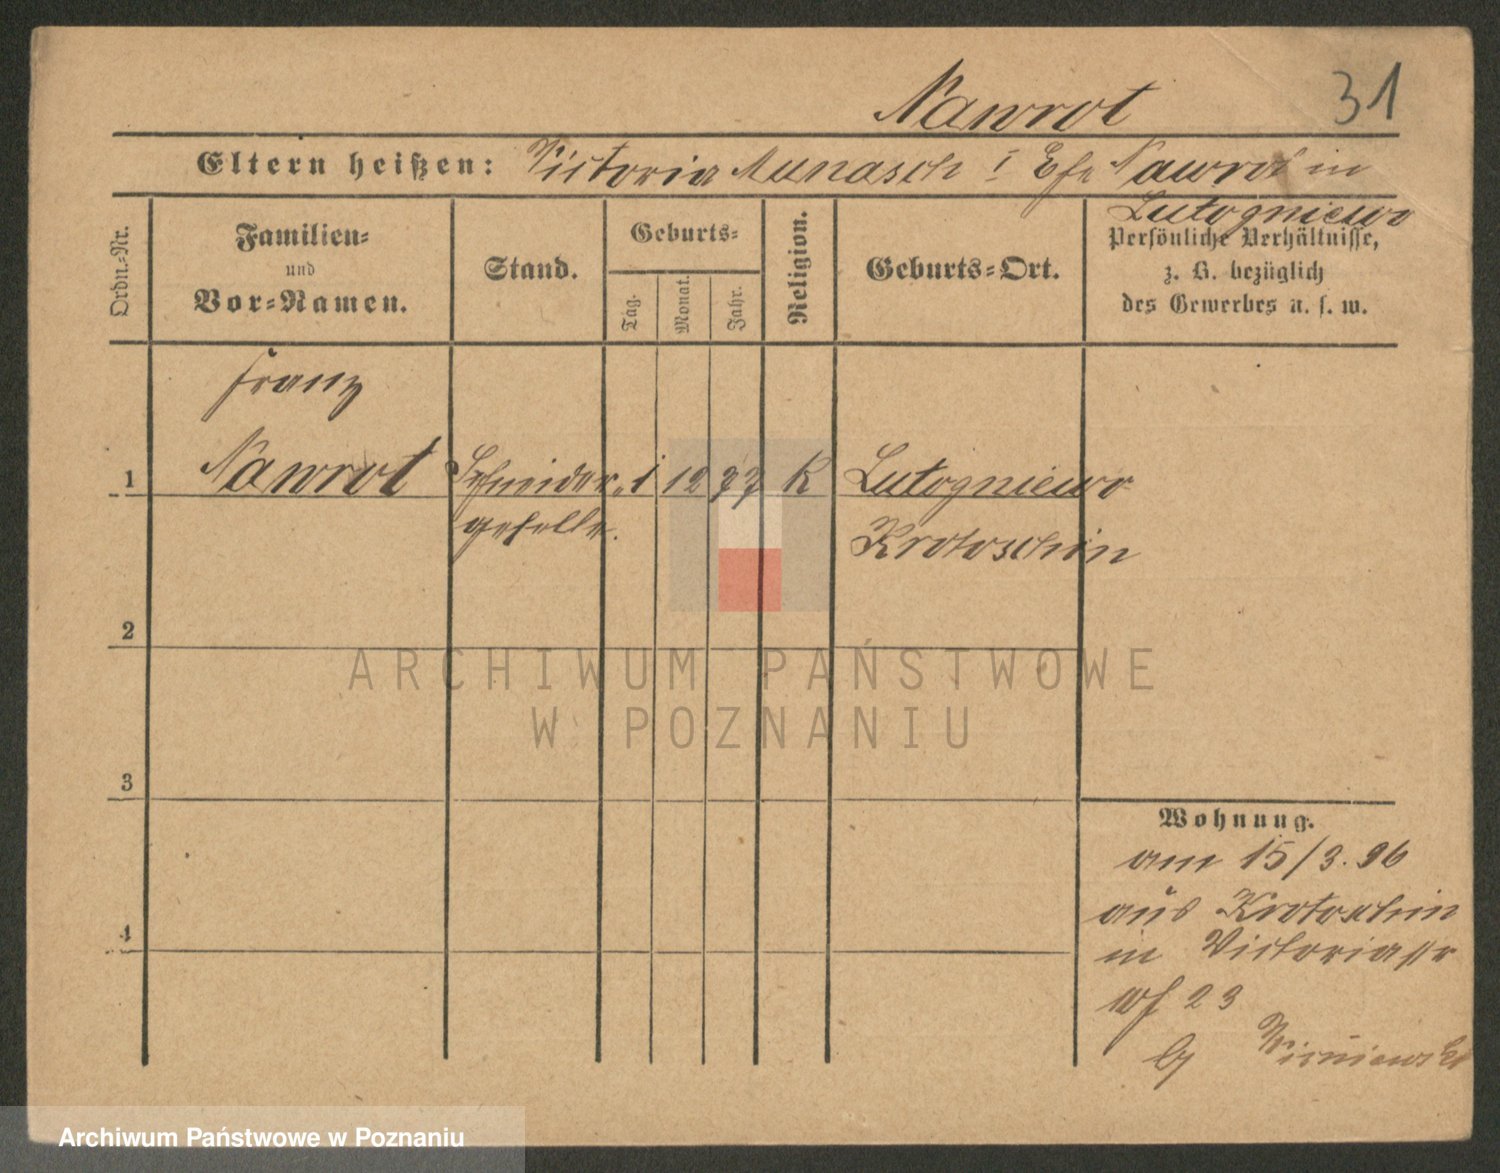 Nawrot
31
Eltern heißen: Victoria Munasch I Ehe Nawrot in
Lutogniewo
Ordn.-Nr.
Familien-
und
Vor-Namen.
Stand.
Geburts-
Tag.
Monat.
Jahr.
Religion.
Geburts-Ort.
Persönliche Verhältnisse,
z. B. bezüglich
des Gewerbes u. s. w.
Franz
1 Nawrot Schneider- 1 12 77 K Lutogniewo
geselle. Krotoschin
2
3
4
Wohnung.
am 15/3. 96
aus Krotoschin
in Victoriastr
23
Wisniewski
ARCHIWUM PAŃSTWOWE
W POZNANIU
Archiwum Państwowe w Poznaniu